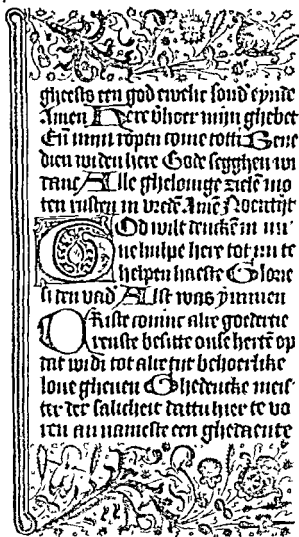 gheests een god ewelic sond' eynde
Amen Here verhoer mijn ghebet
Eñ mijn ropen come totti Bene
dien wi den here Gode segghen wi
danc Alle ghelouige zielē mo
ten rusten in vredē Amē Noentijt
God wilt dencken in mi
ne hulpe here tot mi te
helpen haeste Glorie
si den vad' Alst was ynnmen
Criste coninc alre goedertie
renste besitte onse hertē op
dat wi di tot alre tijt behoerlike
loue gheuen Ghedencke meis
ter der salicheit dattu hier te vo
ren aennameste een ghedaente